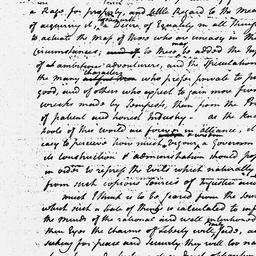 a Rage for property, and little Regard to the Mea
of acquiring it, a Desire of Equality in all Things
to actuate the Mass of those who are uneasy in their
Circumstances; to those, may be added the
of ambitious adventurers, and the Speculations
the many characters who prefer private to p
good, and of others who expect to gain more from
wrecks made by Tempests, than from the Pro
of patient and honest Industry. as the Kn
fools of this world are forever in alliance, it
easy to perceive how much Vigour, a governm
its construction & administration should po
in order to repress the Evils which naturally
from such copious Sources of injustice and
much I think is to be feared from the Sen
which such a State of things is calculated to inf
the minds of the rational and well intentioned
their Eyes the charms of Liberty will fade, an
seeking for peace and Security they will too na